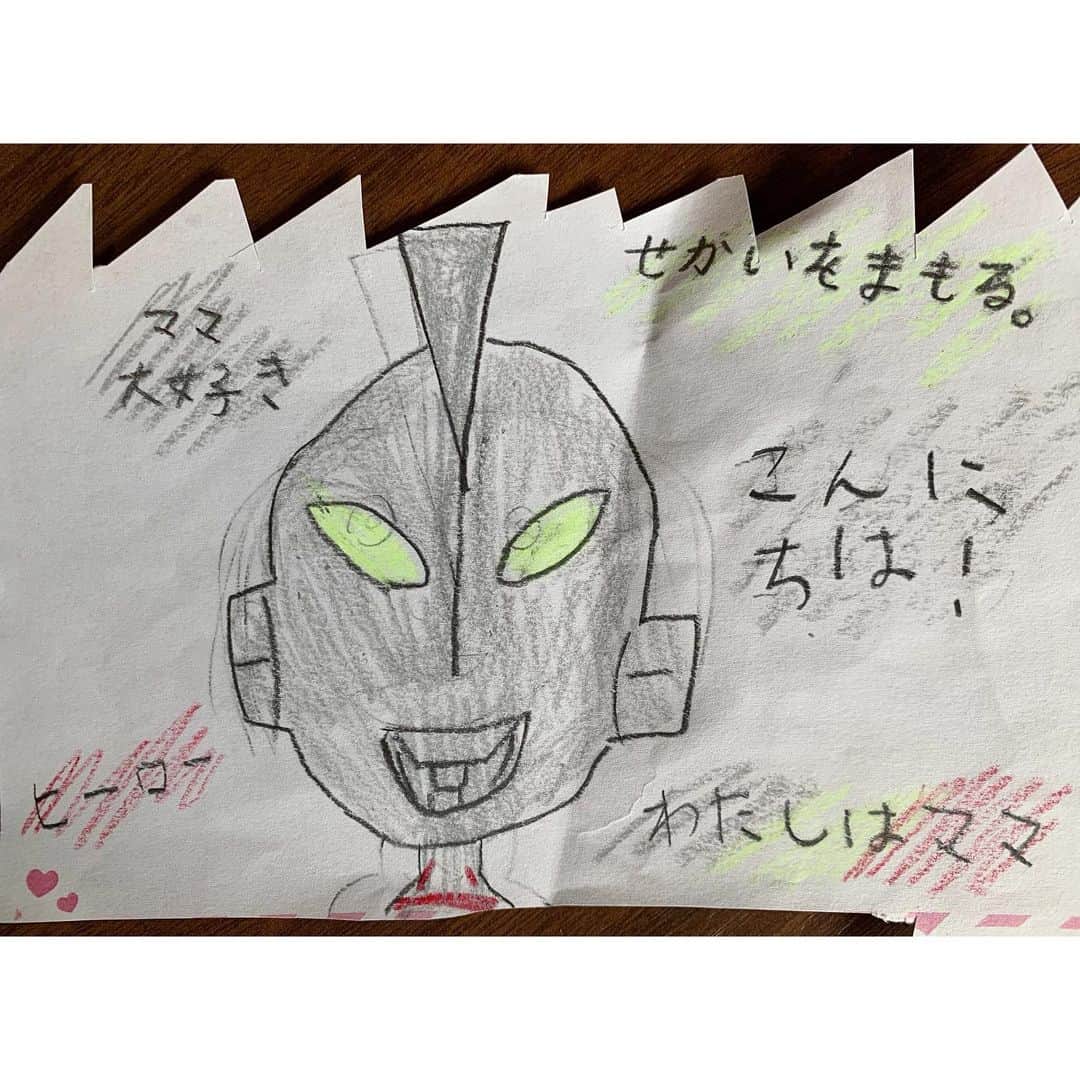 ママ
大好き
せかいをまもる。
こんに
ちは!
ヒーロー
わたしはママ